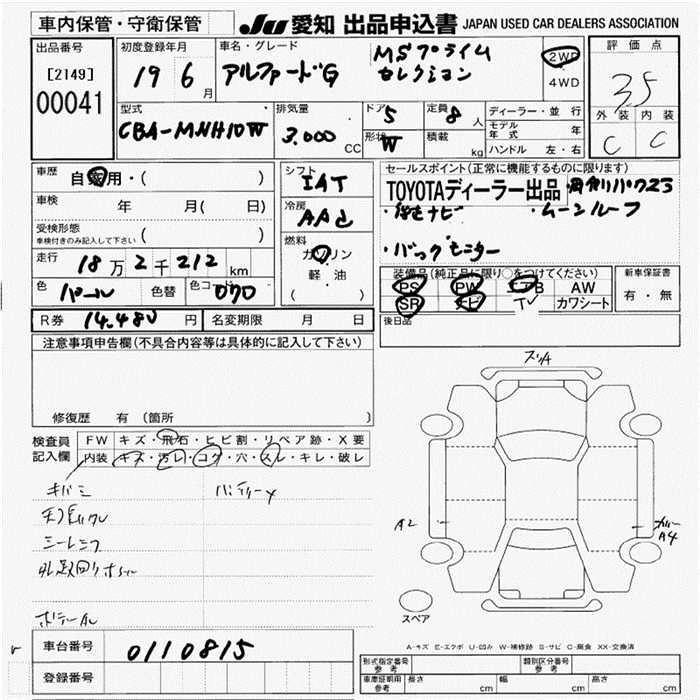 車内保管・守衛保管
JU 愛知 出品申込書 JAPAN USED CAR DEALERS ASSOCIATION
出品番号
[2149]
00041
初度登録年月
19 6月
車名・グレード
アルファードG
MSプライム
セレクション
2WD
4WD
評価点
3.5
外装 内装
C C
型式
CBA-MNH10W
排気量
3.000 CC
ドア 5
形状 W
定員 8人
積載 kg
ディーラー・並行
モデル年式 年
ハンドル 左・右
車歴
自家用・( )
車検
年 月( 日)
受検形態
車検付きのみ記入して下さい ( )
走行
18万2千212 km
色 パール 色替 色コード 070
シフト
IAT
冷房
AAC
燃料
ガソリン
軽・油
( )
セールスポイント(正常に機能するものに限ります)
TOYOTAディーラー出品
・ムーンルーフ
・バックモニター
装備品(純正品に限り○をつけてください)
PS PW エアB AW
SR ナビ TV カワシート
新車保証書
有・無
後日品
R券 14.480円 名変期限 月 日
注意事項申告欄(不具合内容等は具体的に記入して下さい)
修復歴 有 (箇所 )
検査員
記入欄
FW キズ・飛石・ヒビ割・リペア跡・X要
内装 キズ・汚レ・コゲ・穴・スレ・キレ・破レ
スリA
A2
A4
スペア
A-キズ E-エクボ U-凹み W-補修跡 S-サビ C-腐食 XX-交換済
車台番号
0110815
登録番号
形式指定番号
参考
類別区分番号
参考
車庫証明用
参考
長さ cm 幅 cm 高さ cm